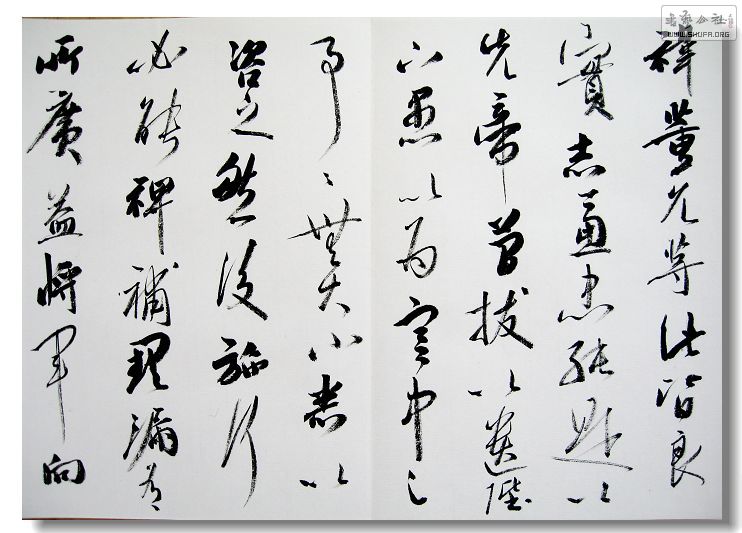 禕董允等此皆良
實志慮忠純是以
先帝簡拔以遺陛
下愚以為宮中之
事〻無大小悉以
咨之然後施行
必能裨補闕漏有
所廣益將軍向
書法公社
WWW.SHUFA.ORG